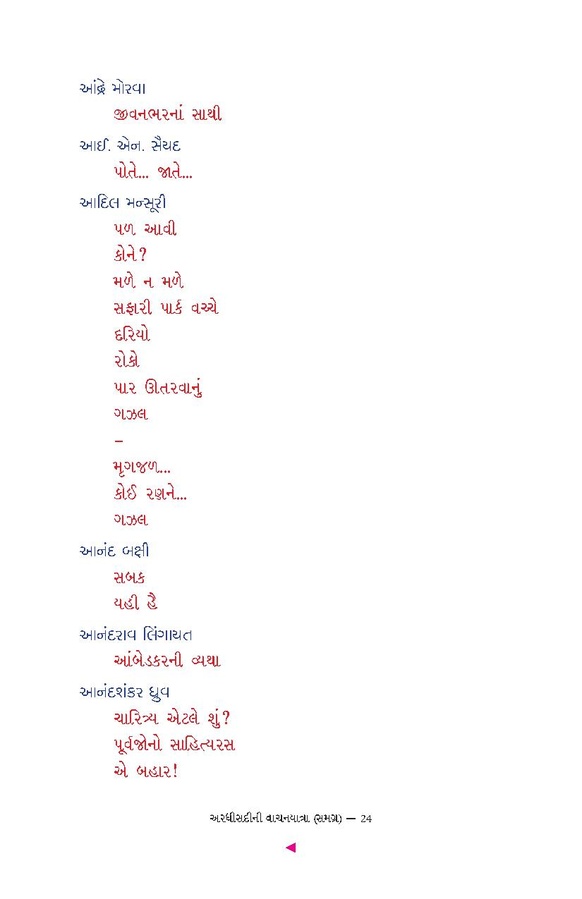 આંદ્રે મોરવા
જીવનભરનાં સાથી
આઈ. એન. સૈયદ
પોતે... જાતે...
આદિલ મન્સૂરી
પળ આવી
કોને?
મળે ન મળે
સફારી પાર્ક વચ્ચે
દરિયો
રોકો
પાર ઊતરવાનું
ગઝલ
–
મૃગજળ...
કોઈ રણને...
ગઝલ
આનંદ બક્ષી
સબક
યહી હૈ
આનંદરાવ લિંગાયત
આંબેડકરની વ્યથા
આનંદશંકર ધ્રુવ
ચારિત્ર્ય એટલે શું?
પૂર્વજોનો સાહિત્યરસ
એ બહાર!
અરધીસદીની વાચનયાત્રા (સમગ્ર) — 24